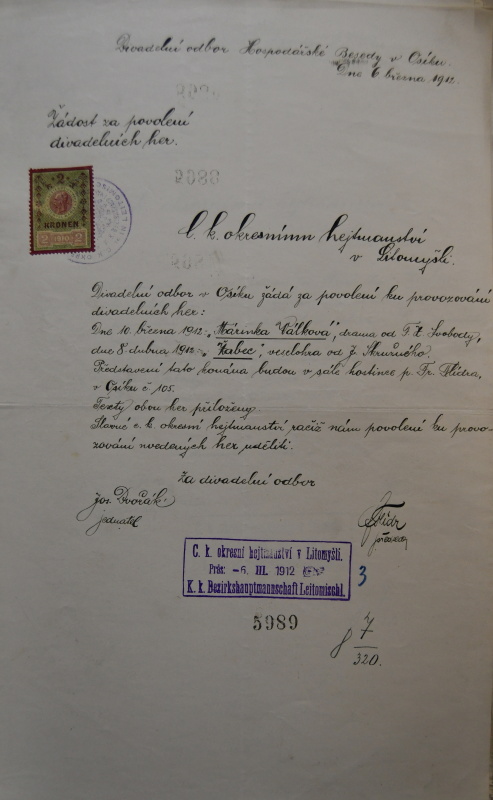 Divadelní odbor Hospodářské Besedy v Osíku.
Dne 6 března 1912.
5988
Žádost za povolení
divadelních her.
5988
2
KRONEN
2 1910 2
C. k. okresnímu hejtmanství
v Litomyšli.
Divadelní odbor v Osíku žádá za povolení ku provozování
divadelních her:
Dne 10. března 1912 „Márinka Válková", drama od F. X. Svobody,
dne 8 dubna 1912 „Žabec", veselohra od J. Skružného.
Představení tato konána budou v sále hostince p. Fr. Flídra,
v Osíku č. 105.
Texty obou her přiloženy.
Slavné c. k. okresní hejtmanství račiž nám povolení ku provo-
zování uvedených her uděliti.
Za divadelní odbor
Jos. Dvořák
jednatel
Flídr
předseda
C. k. okresní hejtmanství v Litomyšli.
Präs: -6. III. 1912
K. k. Bezirkshauptmannschaft Leitomischl.
3
5989
8 7
320.